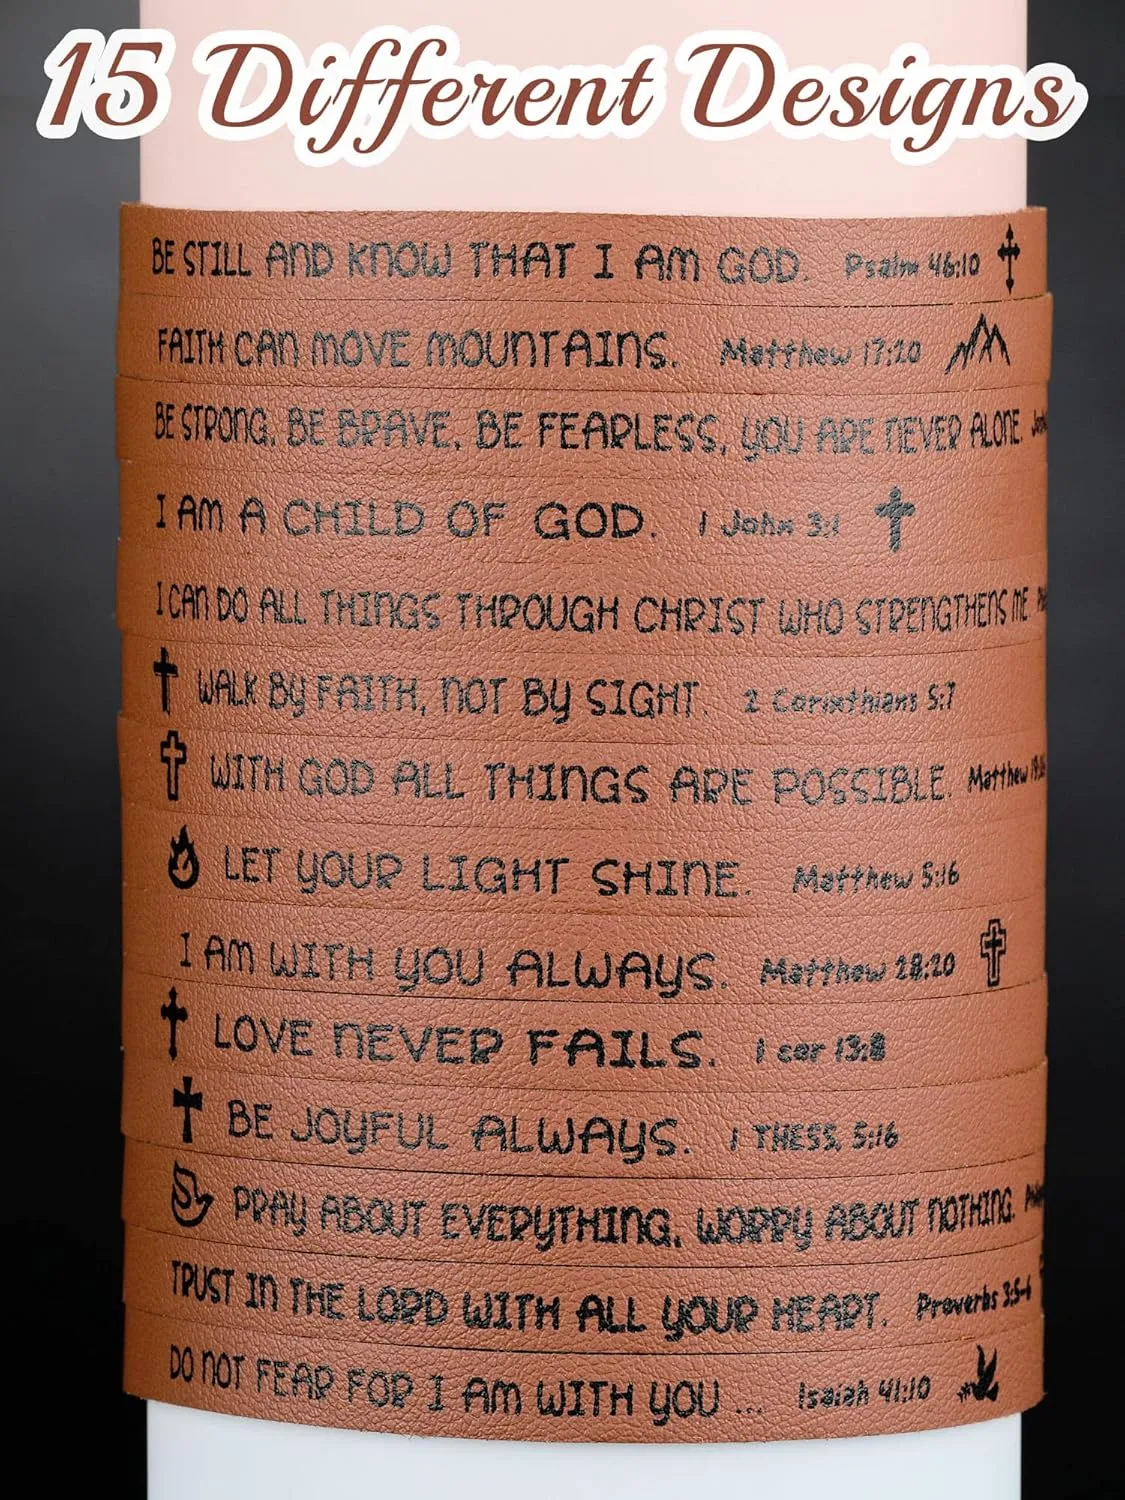 15 Different Designs
BE STILL AND KNOW THAT I AM GOD. Psalm 46:10
FAITH CAN MOVE MOUNTAINS. Matthew 17:20
BE STRONG, BE BRAVE, BE FEARLESS, YOU ARE NEVER ALONE.
I AM A CHILD OF GOD. 1 John 3:1
I CAN DO ALL THINGS THROUGH CHRIST WHO STRENGTHENS ME
WALK BY FAITH, NOT BY SIGHT. 2 Corinthians 5:7
WITH GOD ALL THINGS ARE POSSIBLE. Matthew
LET YOUR LIGHT SHINE. Matthew 5:16
I AM WITH YOU ALWAYS. Matthew 28:20
LOVE NEVER FAILS. 1 cor 13:8
BE JOYFUL ALWAYS. 1 THESS. 5:16
PRAY ABOUT EVERYTHING, WORRY ABOUT NOTHING.
TRUST IN THE LORD WITH ALL YOUR HEART. Proverbs 3:5-6
DO NOT FEAR FOR I AM WITH YOU ... Isaiah 41:10